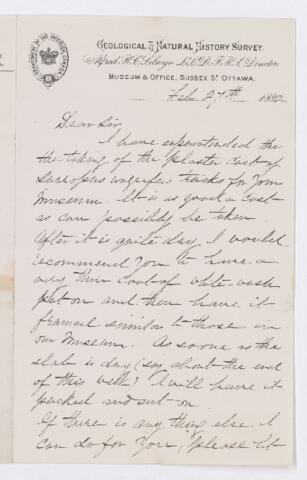 DEPARTMENT OF THE INTERIOR CANADA
GEOLOGICAL & NATURAL HISTORY SURVEY.
Alfred R. C. Selwyn L.L.D. F.R.S. Director
MUSEUM & OFFICE, SUSSEX ST OTTAWA.
Feb 27th 188
Dear Sir
I have superintended the
the taking of the plaster Cast of
Sauropus unguifer tracks for your
Museum. It is as good a Cast
as can possibly be taken.
After it is quite dry I would
recommend you to have a
very thin Coat of white-wash
put on and then have it
framed similar to those in
our Museum. As soon as the
slab is dry (say about the end
of this week) I will have it
packed and sent on.
If there is any thing else I
can do for you, please let